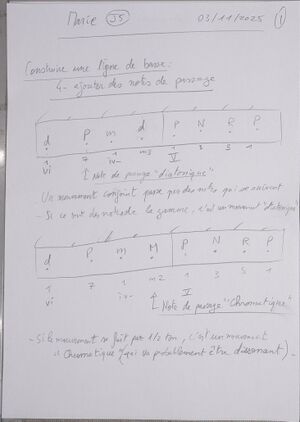 Marie J5 03/11/2025 1
Construire une ligne de basse :
4- ajouter des notes de passage
d P m d P N R P
1 7 1 m3 1 3 5 1
vi iv- V
Note de passage "diatonique"
Un mouvement conjoint passe par des notes qui se suivent
- Si ce sont des notes de la gamme, c'est un mouvement "diatonique"
d P m M P N R P
1 7 1 m2 1 3 5 1
vi iv- V
Note de passage "Chromatique"
- Si le mouvement se fait par 1/2 ton, c'est un mouvement
"Chromatique" (qui va probablement être dissonant).